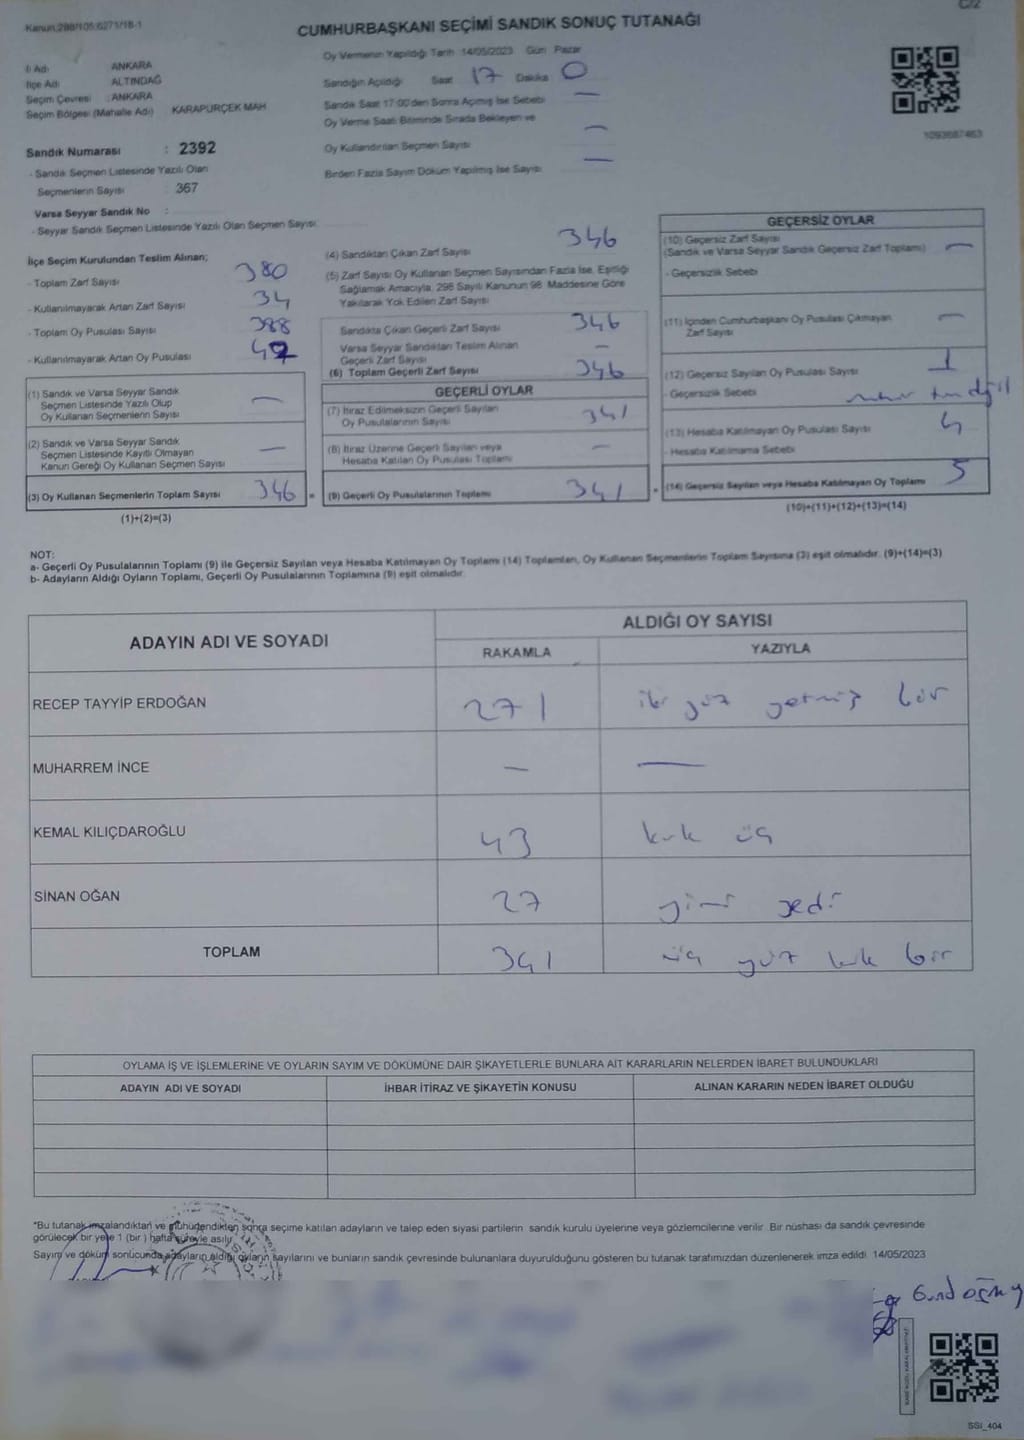 Kanun:298/105;6271/18-1
C/2
CUMHURBAŞKANI SEÇİMİ SANDIK SONUÇ TUTANAĞI
İl Adı: ANKARA
İlçe Adı: ALTINDAĞ
Seçim Çevresi : ANKARA
Seçim Bölgesi (Mahalle Adı) KARAPÜRÇEK MAH
Sandık Numarası : 2392
- Sandık Seçmen Listesinde Yazılı Olan
Seçmenlerin Sayısı 367
Varsa Seyyar Sandık No :
- Seyyar Sandık Seçmen Listesinde Yazılı Olan Seçmen Sayısı:
Oy Vermenin Yapıldığı Tarih 14/05/2023 Gün Pazar
Sandığın Açıldığı Saat 17 Dakika 0
Sandık Saat 17:00'den Sonra Açılmış İse Sebebi —
Oy Verme Saati Bitiminde Sırada Bekleyen ve
Oy Kullandırılan Seçmen Sayısı —
Birden Fazla Sayım Döküm Yapılmış İse Sayısı —
1093687463
İlçe Seçim Kurulundan Teslim Alınan;
- Toplam Zarf Sayısı 380
- Kullanılmayarak Artan Zarf Sayısı 34
- Toplam Oy Pusulası Sayısı 388
- Kullanılmayarak Artan Oy Pusulası 42
(1) Sandık ve Varsa Seyyar Sandık
Seçmen Listesinde Yazılı Olup
Oy Kullanan Seçmenlerin Sayısı —
(2) Sandık ve Varsa Seyyar Sandık
Seçmen Listesinde Kayıtlı Olmayan
Kanun Gereği Oy Kullanan Seçmen Sayısı —
(3) Oy Kullanan Seçmenlerin Toplam Sayısı 346 =
(1)+(2)=(3)
(4) Sandıktan Çıkan Zarf Sayısı 346
(5) Zarf Sayısı Oy Kullanan Seçmen Sayısından Fazla İse, Eşitliği
Sağlamak Amacıyla, 298 Sayılı Kanunun 98. Maddesine Göre
Yakılarak Yok Edilen Zarf Sayısı
Sandıkta Çıkan Geçerli Zarf Sayısı 346
Varsa Seyyar Sandıktan Teslim Alınan
Geçerli Zarf Sayısı —
(6) Toplam Geçerli Zarf Sayısı 346
GEÇERLİ OYLAR
(7) İtiraz Edilmeksizin Geçerli Sayılan
Oy Pusulalarının Sayısı 341
(8) İtiraz Üzerine Geçerli Sayılan veya
Hesaba Katılan Oy Pusulası Toplamı —
(9) Geçerli Oy Pusulalarının Toplamı 341 +
GEÇERSİZ OYLAR
(10) Geçersiz Zarf Sayısı
(Sandık ve Varsa Seyyar Sandık Geçersiz Zarf Toplamı) —
- Geçersizlik Sebebi
(11) İçinden Cumhurbaşkanı Oy Pusulası Çıkmayan
Zarf Sayısı —
(12) Geçersiz Sayılan Oy Pusulası Sayısı 1
- Geçersizlik Sebebi
(13) Hesaba Katılmayan Oy Pusulası Sayısı 4
- Hesaba Katılmama Sebebi
(14) Geçersiz Sayılan veya Hesaba Katılmayan Oy Toplamı 5
(10)+(11)+(12)+(13)=(14)
NOT:
a- Geçerli Oy Pusulalarının Toplamı (9) ile Geçersiz Sayılan veya Hesaba Katılmayan Oy Toplamı (14) Toplamları, Oy Kullanan Seçmenlerin Toplam Sayısına (3) eşit olmalıdır. (9)+(14)=(3)
b- Adayların Aldığı Oyların Toplamı, Geçerli Oy Pusulalarının Toplamına (9) eşit olmalıdır.
ADAYIN ADI VE SOYADI ALDIĞI OY SAYISI
RAKAMLA YAZIYLA
RECEP TAYYİP ERDOĞAN 271 iki yüz yetmiş bir
MUHARREM İNCE — —
KEMAL KILIÇDAROĞLU 43 kırk üç
SİNAN OĞAN 27 yirmi yedi
TOPLAM 341 üç yüz kırk bir
OYLAMA İŞ VE İŞLEMLERİNE VE OYLARIN SAYIM VE DÖKÜMÜNE DAİR ŞİKAYETLERLE BUNLARA AİT KARARLARIN NELERDEN İBARET BULUNDUKLARI
ADAYIN ADI VE SOYADI İHBAR İTİRAZ VE ŞİKAYETİN KONUSU ALINAN KARARIN NEDEN İBARET OLDUĞU
*Bu tutanak imzalandıktan ve mühürlendikten sonra seçime katılan adayların ve talep eden siyasi partilerin sandık kurulu üyelerine veya gözlemcilerine verilir. Bir nüshası da sandık çevresinde
görülecek bir yere 1 (bir ) hafta süreyle asılır.
Sayım ve döküm sonucunda adayların aldığı oyların sayılarını ve bunların sandık çevresinde bulunanlara duyurulduğunu gösteren bu tutanak tarafımızdan düzenlenerek imza edildi. 14/05/2023
SSI_404